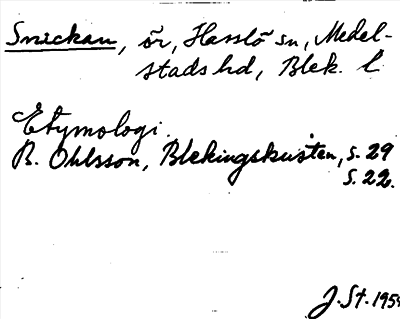 Snickan, ör, Hasslö sn, Medel-
stads hd, Blek. l
Etymologi.
B. Ohlsson, Blekingskusten, s. 29
s. 22.
J. St. 1959